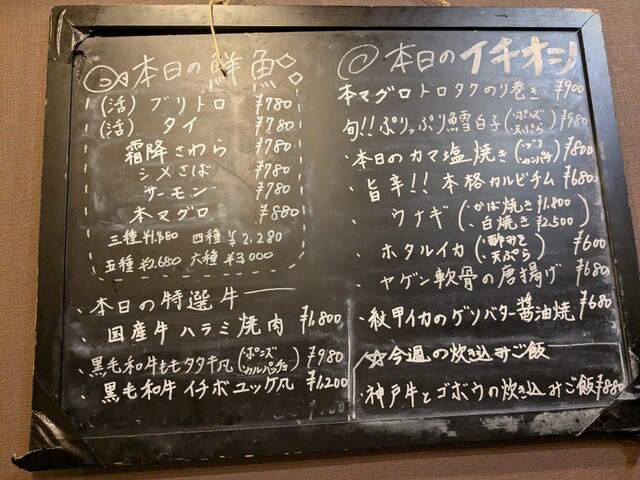 本日の鮮魚
(活) ブリトロ ¥780
(活) タイ ¥780
霜降さわら ¥780
シメさば ¥780
サーモン ¥780
本マグロ ¥880
三種¥1.880 四種¥2.280
五種¥2.680 六種¥3000
、本日の特選牛
、国産牛ハラミ焼肉 ¥1.800
、黒毛和牛ももタタキ風(ポンズ カルパッチョ) ¥980
、黒毛和牛イチボユッケ風 ¥1.200
本日のイチオシ
本マグロトロタクのり巻き ¥900
旬!!ぷりっぷり鱈白子(ポンズ 天ぷら) ¥980
・本日のカマ塩焼き(ブリ カンパチ) ¥800
・旨辛!!本格カルビチム ¥680
・ウナギ(・かば焼き¥1.800 ・白焼き¥2.500)
・ホタルイカ(・酢みそ ・天ぷら) ¥600
・ヤゲン軟骨の唐揚げ ¥680
・紋甲イカのゲソバター醤油焼 ¥680
☆今週の炊き込みご飯
・神戸牛とゴボウの炊き込みご飯 ¥880